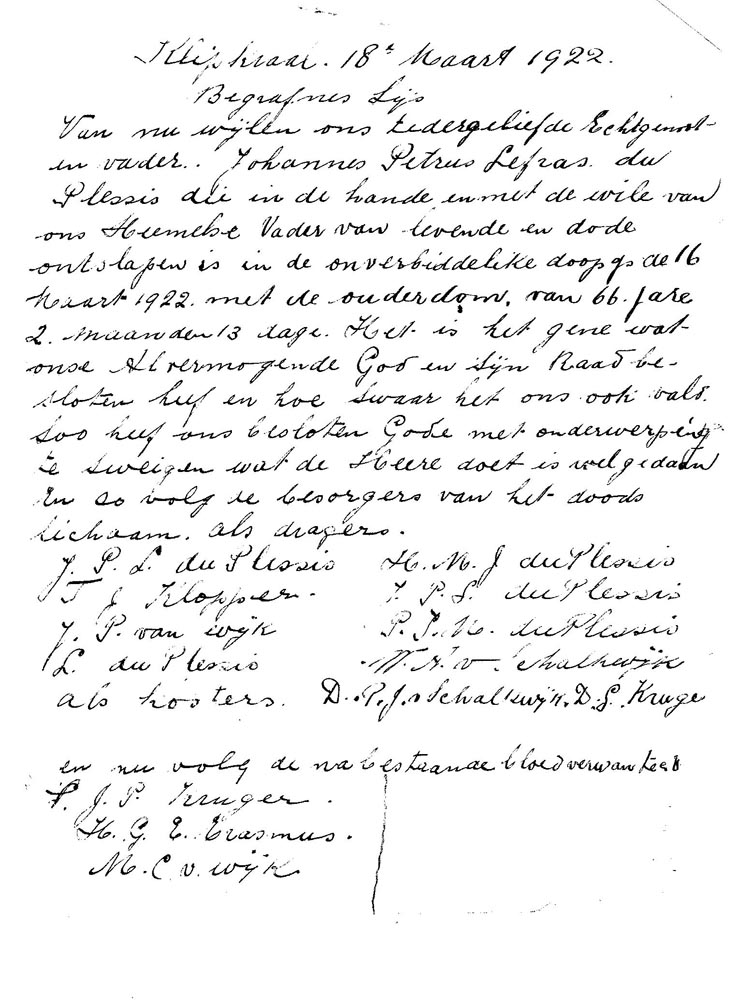 Klipkraal. 18e Maart 1922.
Begrafnes Lijs
Van nu wijlen ons tedergeliefde Echtgenoot
en vader. Johannes Petrus Lefras du
Plessis die in de hande en met de wile van
ons Heemelse Vader van levende en dode
ontslapen is in de onverbiddelike doops de 16
Maart 1922. met de ouderdom, van 66. Jare
2. maanden 13 dage. Het is het gene wat
onse Alvermogende God en sijn Raad be-
sloten heef en hoe swaar het ons ook vald.
Soo heef ons besloten Gode met onderwerping
te sweigen wat de Heere doet is wel gedaan
En so volg de besorgers van het doods
lichaam. als dragers.
J. P. L. du Plessis H. M. J du Plessis
T J Klopper. J. P. S. du Plessis
J. P. van wijk P. J. M. du Plessis
L. du Plessis W. A. v Schalkwijk
als kosters. D. P. J. v Schalkwijk. D. S. Kruge
en nu volg de nabestaande bloedverwanteed
S. J. P. Kruger.
H. G. E. Erasmus.
M. C v. wijk